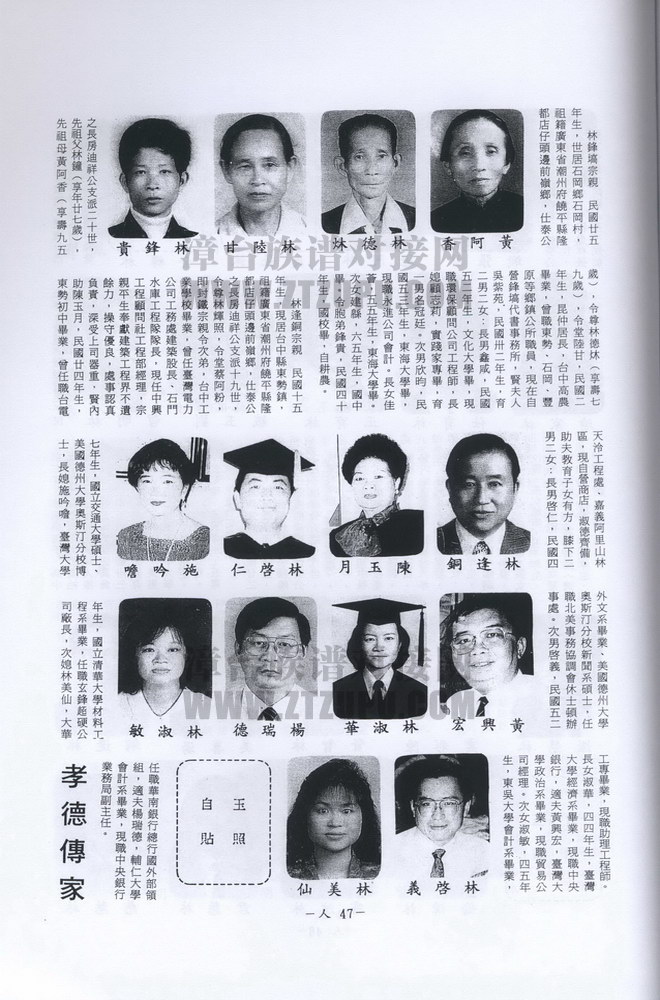 林鋒塙宗親　民國廿五
年生，世居石岡鄉石岡村，
祖籍廣東省潮州府饒平縣隆
都店仔頭邊前嶺鄉，仕泰公
黃阿香
林德炑
林陸甘
林鋒貴
之長房迪祥公支派二十世，
先祖父林鐘（享年廿七歲），
先祖母黃阿香（享壽九五
歲），令尊林德炑（享壽七
九歲），令堂陸甘，民國二
年生，昆仲居長，台中高農
畢業，曾職東勢、石岡、豐
原等鄉鎮公所職員，現在自
營鋒塙代書事務所，賢夫人
吳紫苑，民國卅二年生，育
二男二女：長男鑫咸，民國
五一年生，文化大學畢，現
職環保顧問公司工程師，長
媳顧志莉，實踐家專畢，育
一男名冠廷。次男欣昀，民
國五三年生，東海大學畢，
現職永進公司會計。長女佳
蒼，五五年生，東海大學畢。
次女建縣，六五年生，國中
畢，令胞弟鋒貴，民國四十
年生，國校畢，自耕農。
林逢銅宗親　民國十五
年生，現居台中縣東勢鎮，
祖籍廣東省潮州府饒平縣隆
都店仔頭邊前嶺鄉，仕泰公
之長房迪祥公支派十九世，
令尊林輝照，令堂蔡阿粉，
即封鐵宗親令次弟，台中工
業學校畢業，曾任臺灣電力
公司工務處建築股長、石門
水庫工程隊隊長，現任中興
工程顧問社工程部經理，宗
親平生奉獻建築工程界不遺
餘力，操守優良，處事認真
負責，深受上司器重，賢內
助陳玉月，民國廿四年生，
東勢初中畢業，曾任職台電
天冷工程處、嘉義阿里山林
區，現自營商店，淑德齊備，
助夫教育子女有方，膝下二
男二女：長男啓仁，民國四
林逢銅
陳玉月
林啓仁
施吟噡
七年生，國立交通大學碩士、
美國德州大學奧斯汀分校博
士，長媳施吟噡，臺灣大學
外文系畢業、美國德州大學
奧斯汀分校新聞系碩士，任
職北美事務協調會休士頓辦
事處。次男啓義，民國五二
黃興宏
林淑華
楊瑞德
林淑敏
年生，國立清華大學材料工
程系畢業，任職玄鋒超硬公
司廠長，次媳林美仙，大華
工專畢業，現職助理工程師。
長女淑華，四四年生，臺灣
大學經濟系畢業，現職中央
銀行，適夫黃興宏，臺灣大
學政治系畢業，現職貿易公
司經理。次女淑敏，四五年
生，東吳大學會計系畢業，
林啓義
林美仙
玉照
自貼
任職華南銀行總行國外部領
組，適夫楊瑞德，輔仁大學
會計系畢業，現職中央銀行
業務局副主任。
孝德傳家
－人 47－
漳台族谱对接网
WWW.ZTZUPU.COM
漳台族谱对接网
WWW.ZTZUPU.COM